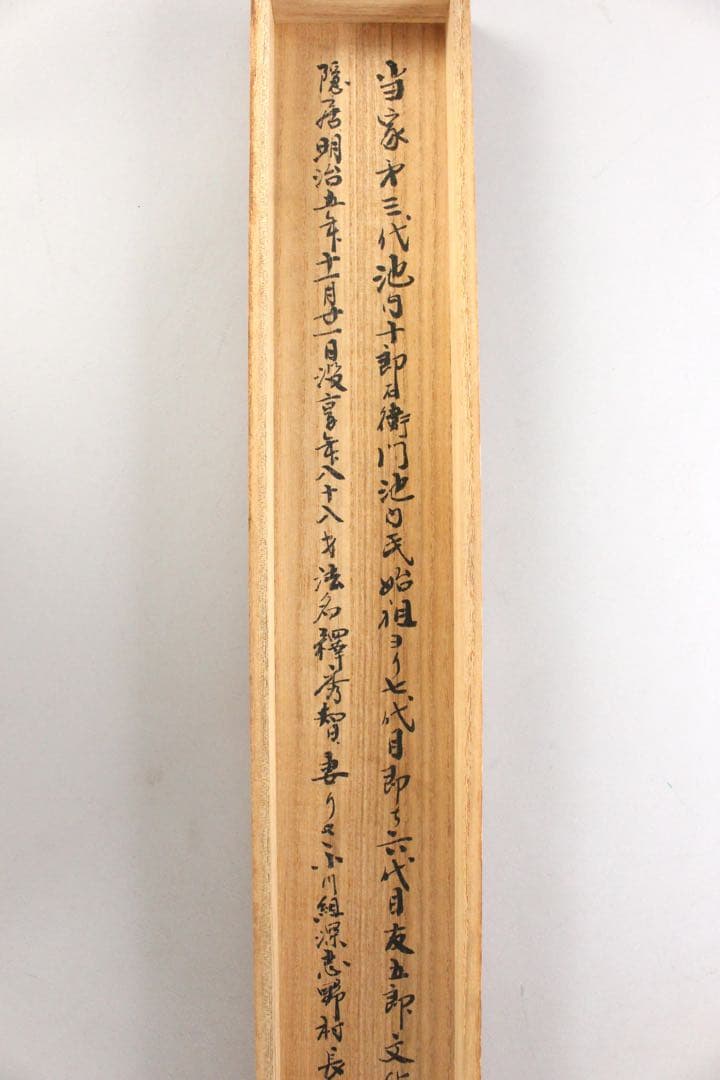 当家第三代池内十郎右衛門池内氏始祖ヨリ七代目即ち六代目友五郎文
隠居明治五年十一月廿一日没享年八十八才法名釋秀智妻りせ小川組深志野村長